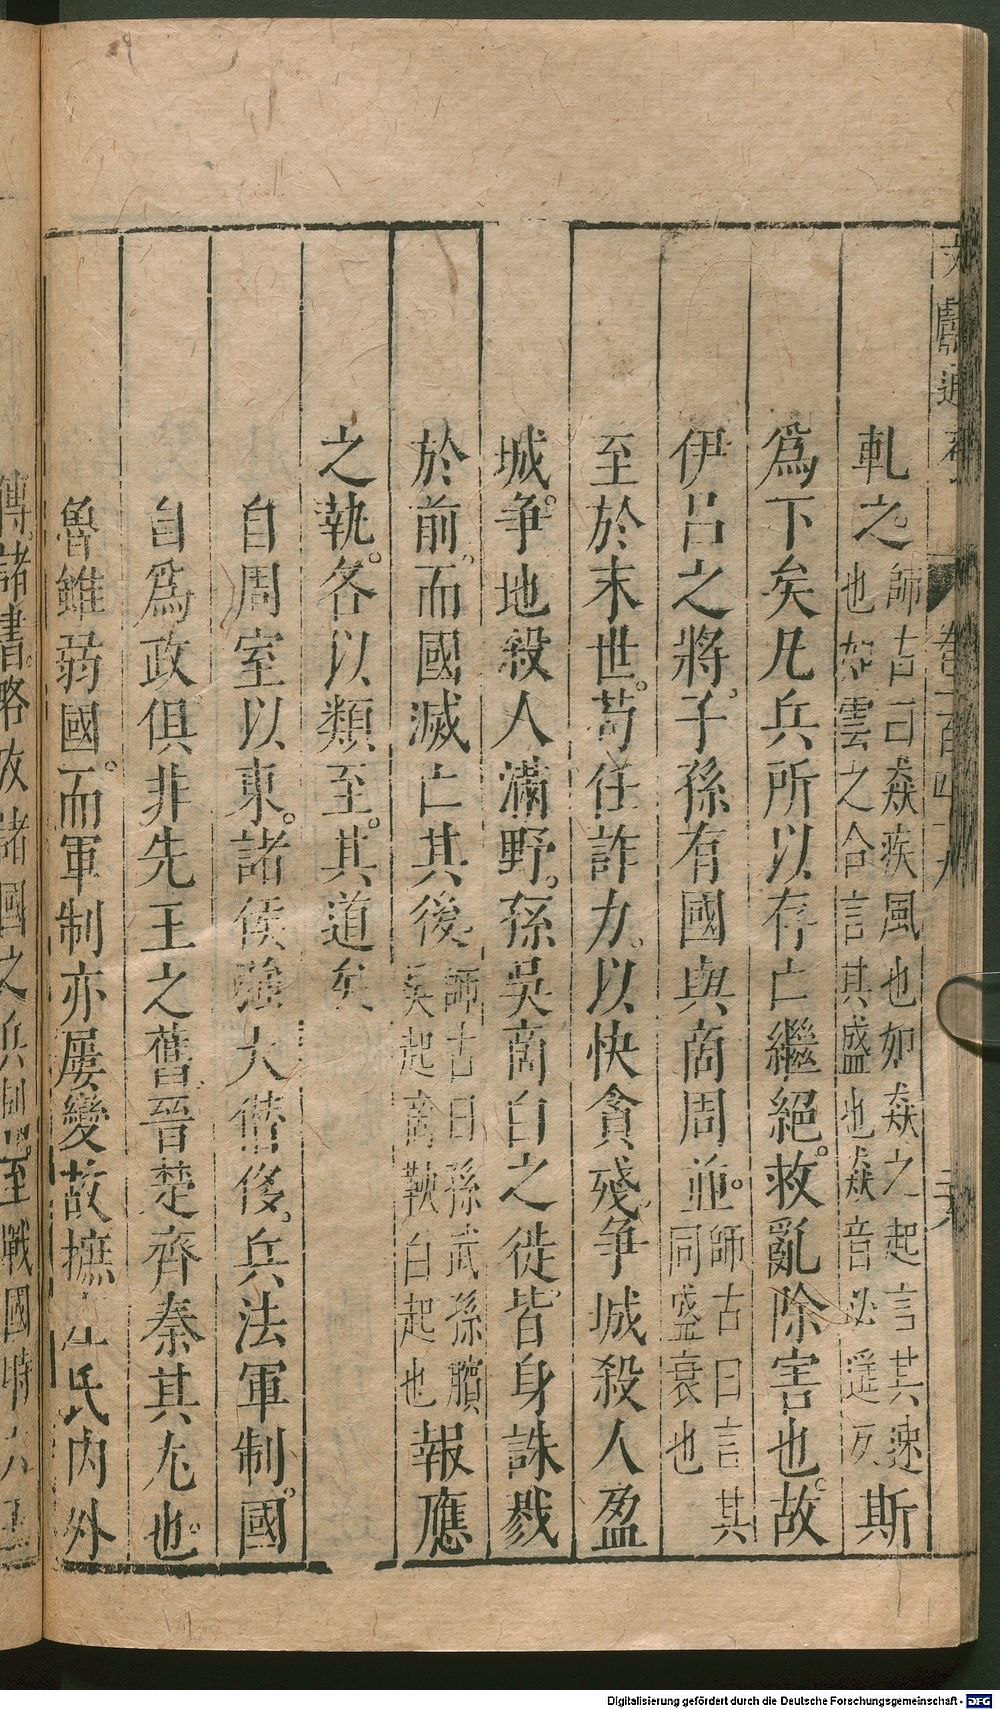 軋之師古曰猋疾風也如猋之起言其速也如雲之合言其盛也猋音必遥反斯
爲下矣凡兵所以存亡繼絕救亂除害也故
伊呂之將子孫有國與商周並師古曰言其同盛衰也
至於末世苟任詐力以快貪殘爭城殺人盈
城爭地殺人滿野孫吳商白之徒皆身誅戮
於前而國滅亡其後師古曰孫武孫臏吳起商鞅白起也報應
之執各以類至其道矣
自周室以東諸侯強大僭侈兵法軍制國
自爲政俱非先王之舊晉楚齊秦其尤也
魯雖弱國而軍制亦屢變故摭左氏內外
傳諸書略攷諸國之兵制至戰國時